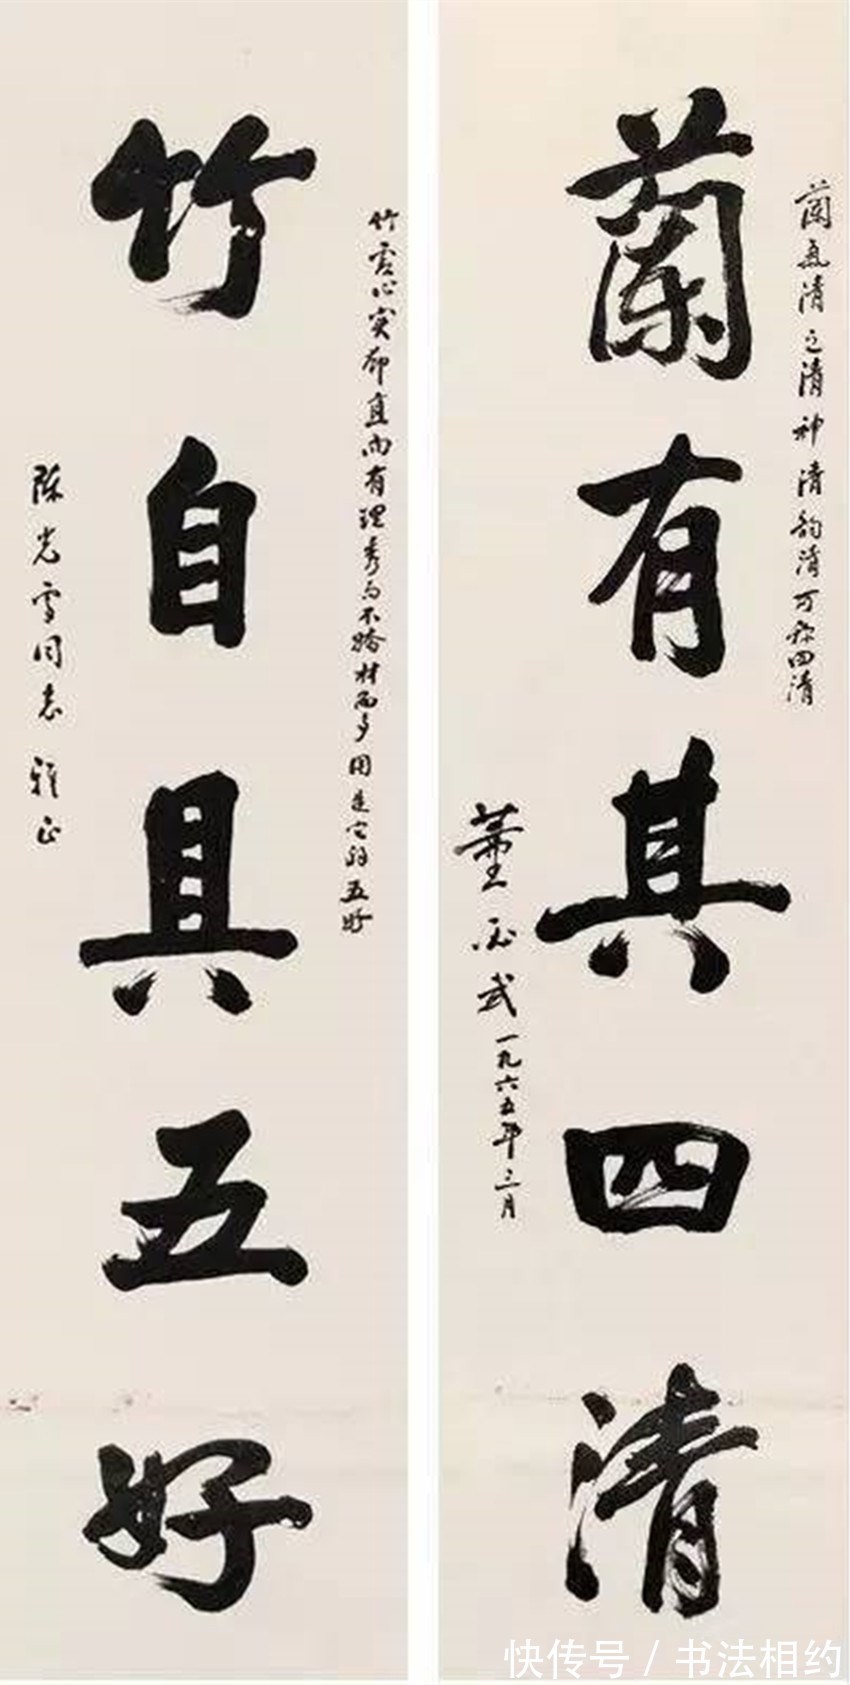 蘭氣清色清神清韵清可称四清
蘭有其四清
董必武一九六五年三月
竹虚心实節直而有理秀而不材而多用是它的五好
竹自具五好
陈光雪同志雅正
快传号 / 书法相约